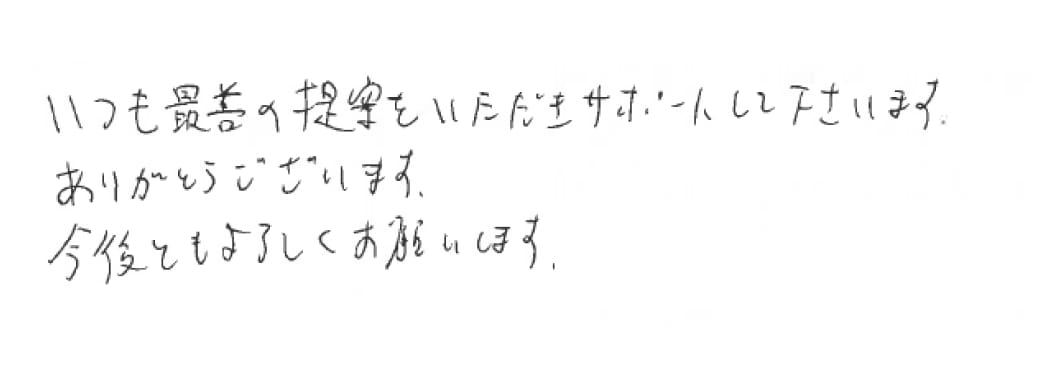 いつも最善の提案をいただきサポートして下さいます.
ありがとうございます.
今後ともよろしくお願いします.